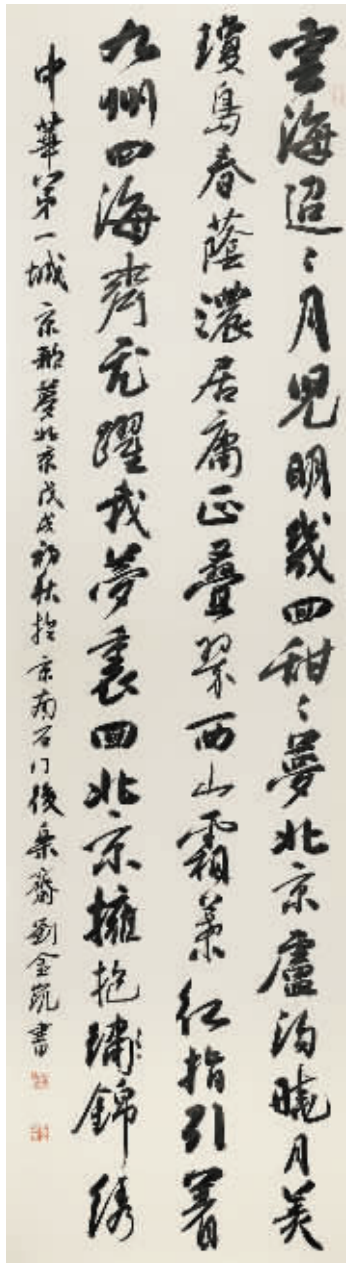 雲海迢々月兒明幾回甜々夢北京盧沟曉月美
瓊島春蔭濃居庸正疊翠西山霜葉紅指引着
九州四海齊躍我夢裏回北京擁抱錦綉
中華第一城 京歌夢北京戊戌初秋於京南石門後樂齋劉金凱書